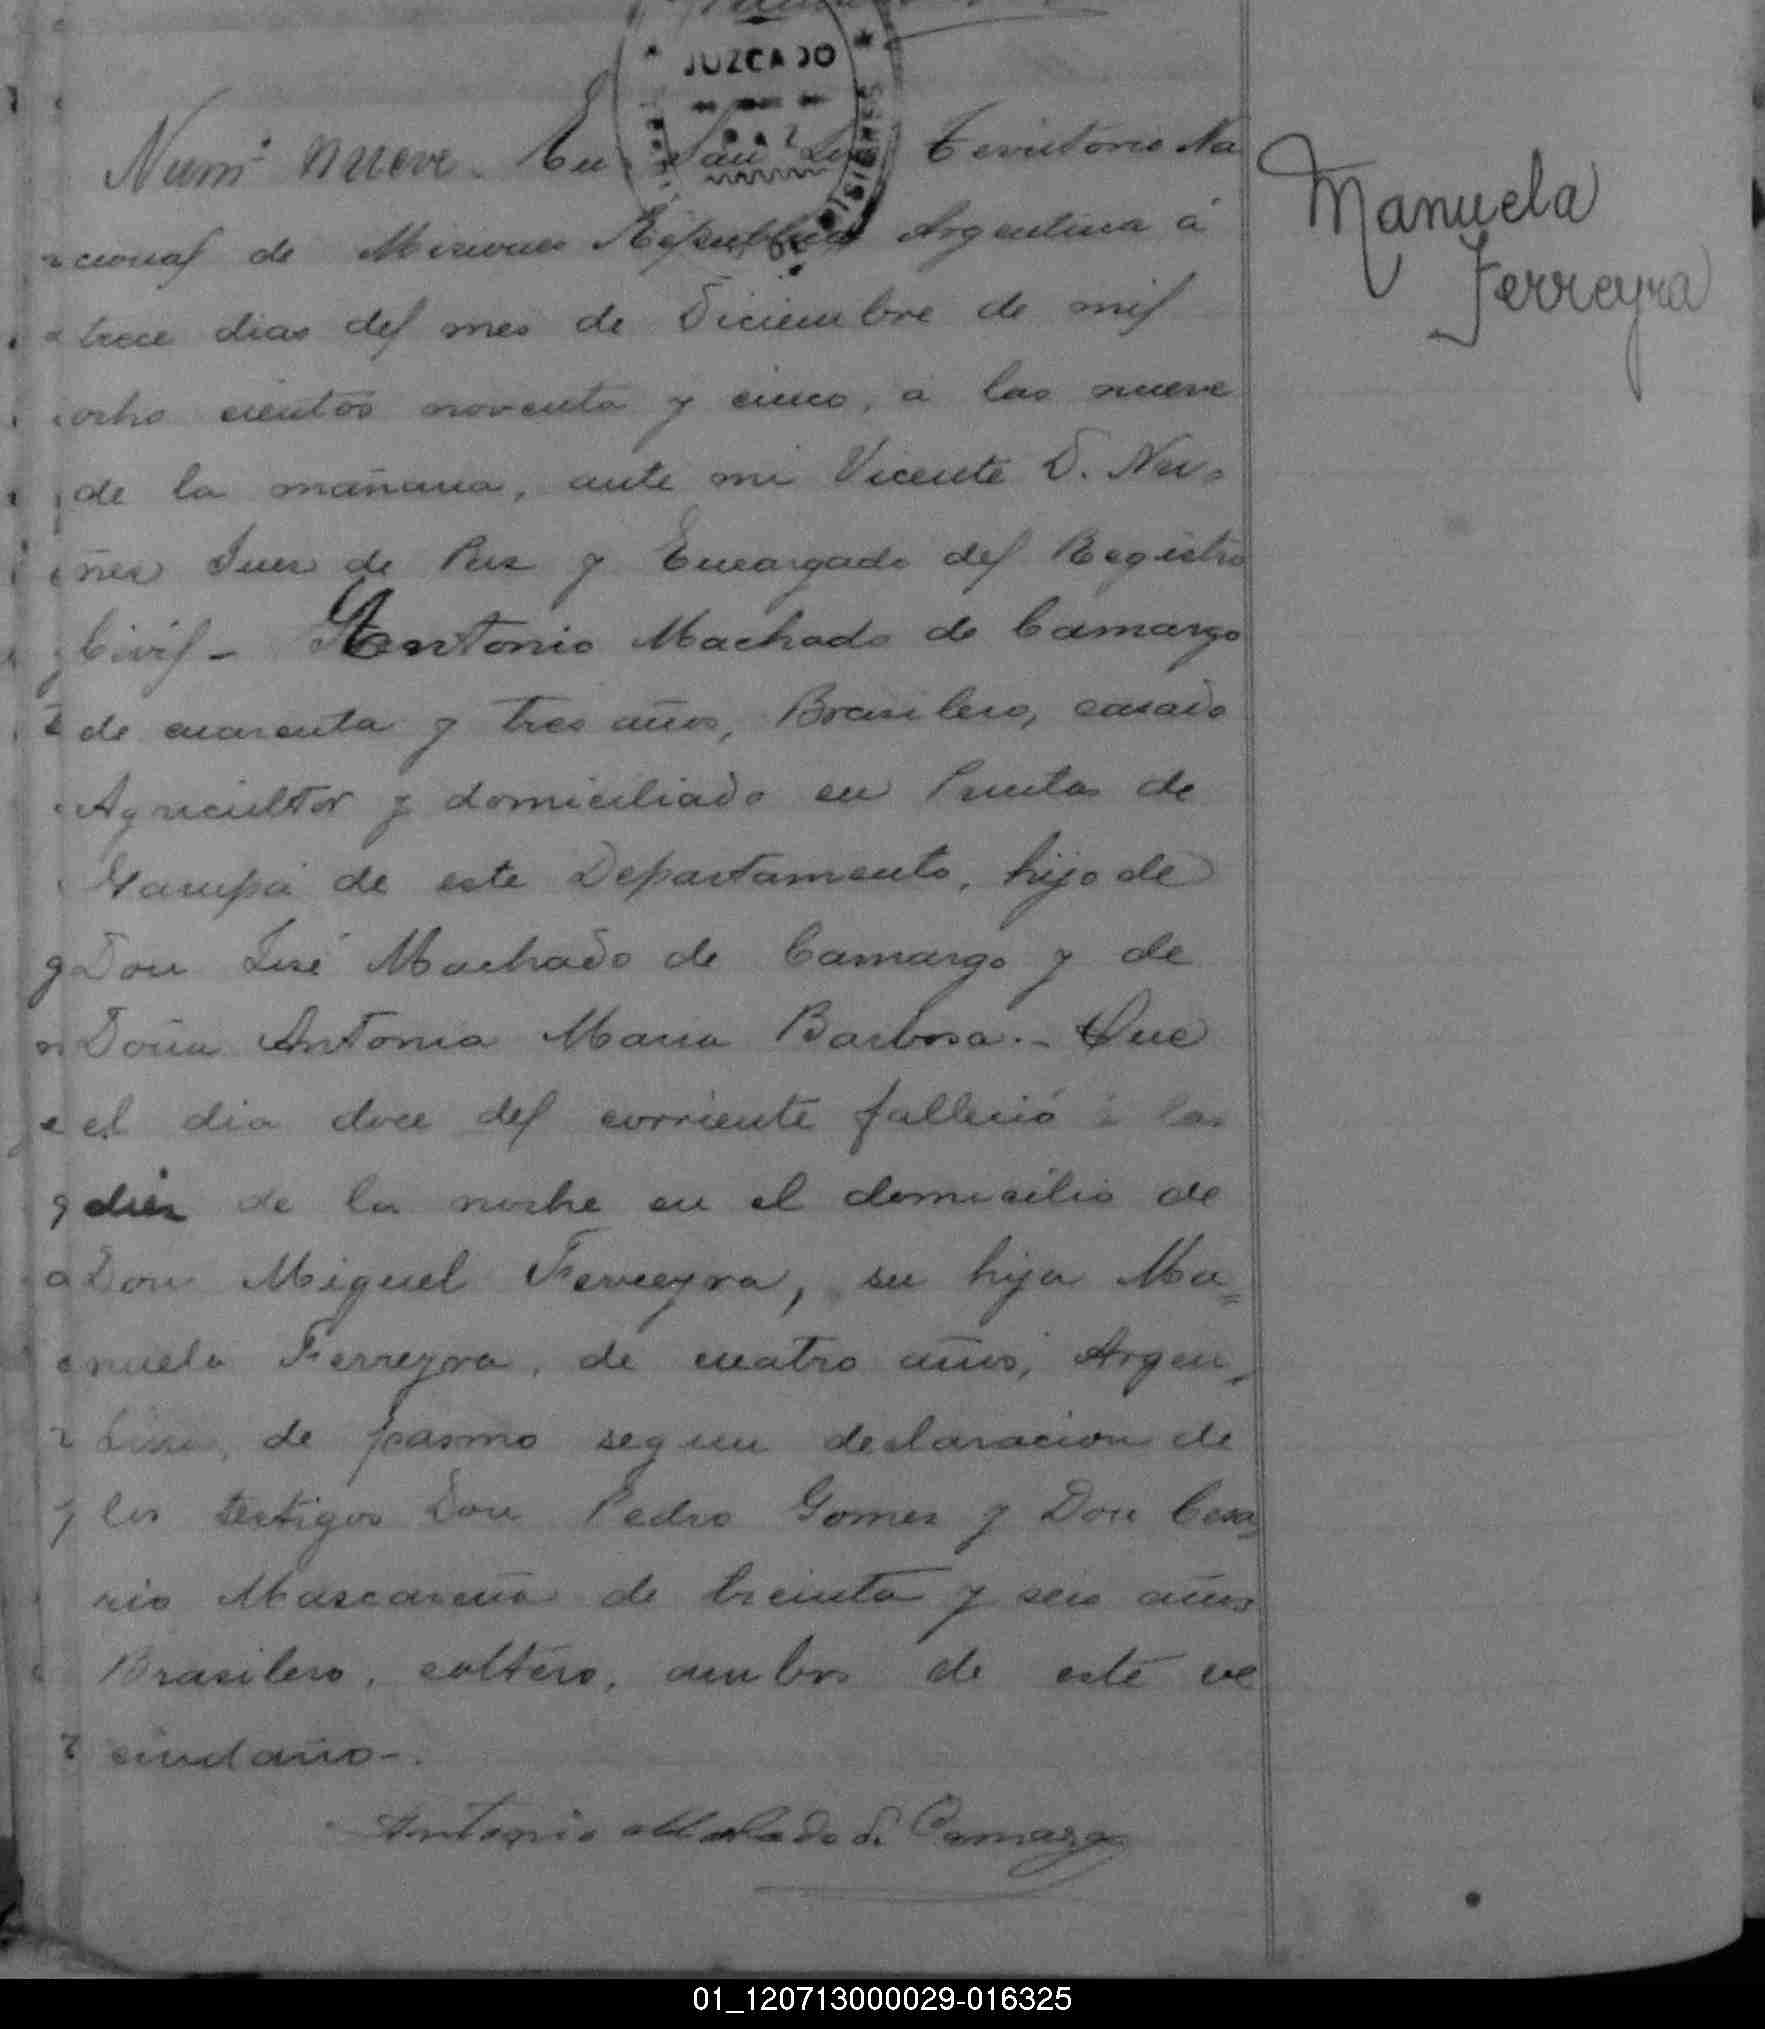 JUZGADO
Num° nueve. En San Territorio Na
cional de Misiones República Argentina á
trece dias del mes de Diciembre de mil
ocho cientos noventa y cinco, a las nueve
de la mañana, ante mi Vicente D. Nu-
ñes Jues de Pas y Encargado del Registro
Civil - Antonio Machado de Camargo
de cuarenta y tres años, Brasilero, casado
Agricultor y domiciliado en Puntas de
Garupá de este Departamento, hijo de
Don José Machado de Camargo y de
Doña Antonia Maria Barbosa.- Que
el dia doce del corriente falleció á las
dies de la noche en el domicilio de
Don Miguel Ferreyra, su hija Ma=
nuela Ferreyra, de cuatro años, Argen-
tina, de pasmo segun declaracion de
los testigos Don Pedro Gomes y Don Cesa
rio Mascareña de treinta y seis años
Brasilero, soltero, ambos de este ve
cindario-.
Antonio Machado de Camargo
Manuela
Ferreyra
01_120713000029-016325